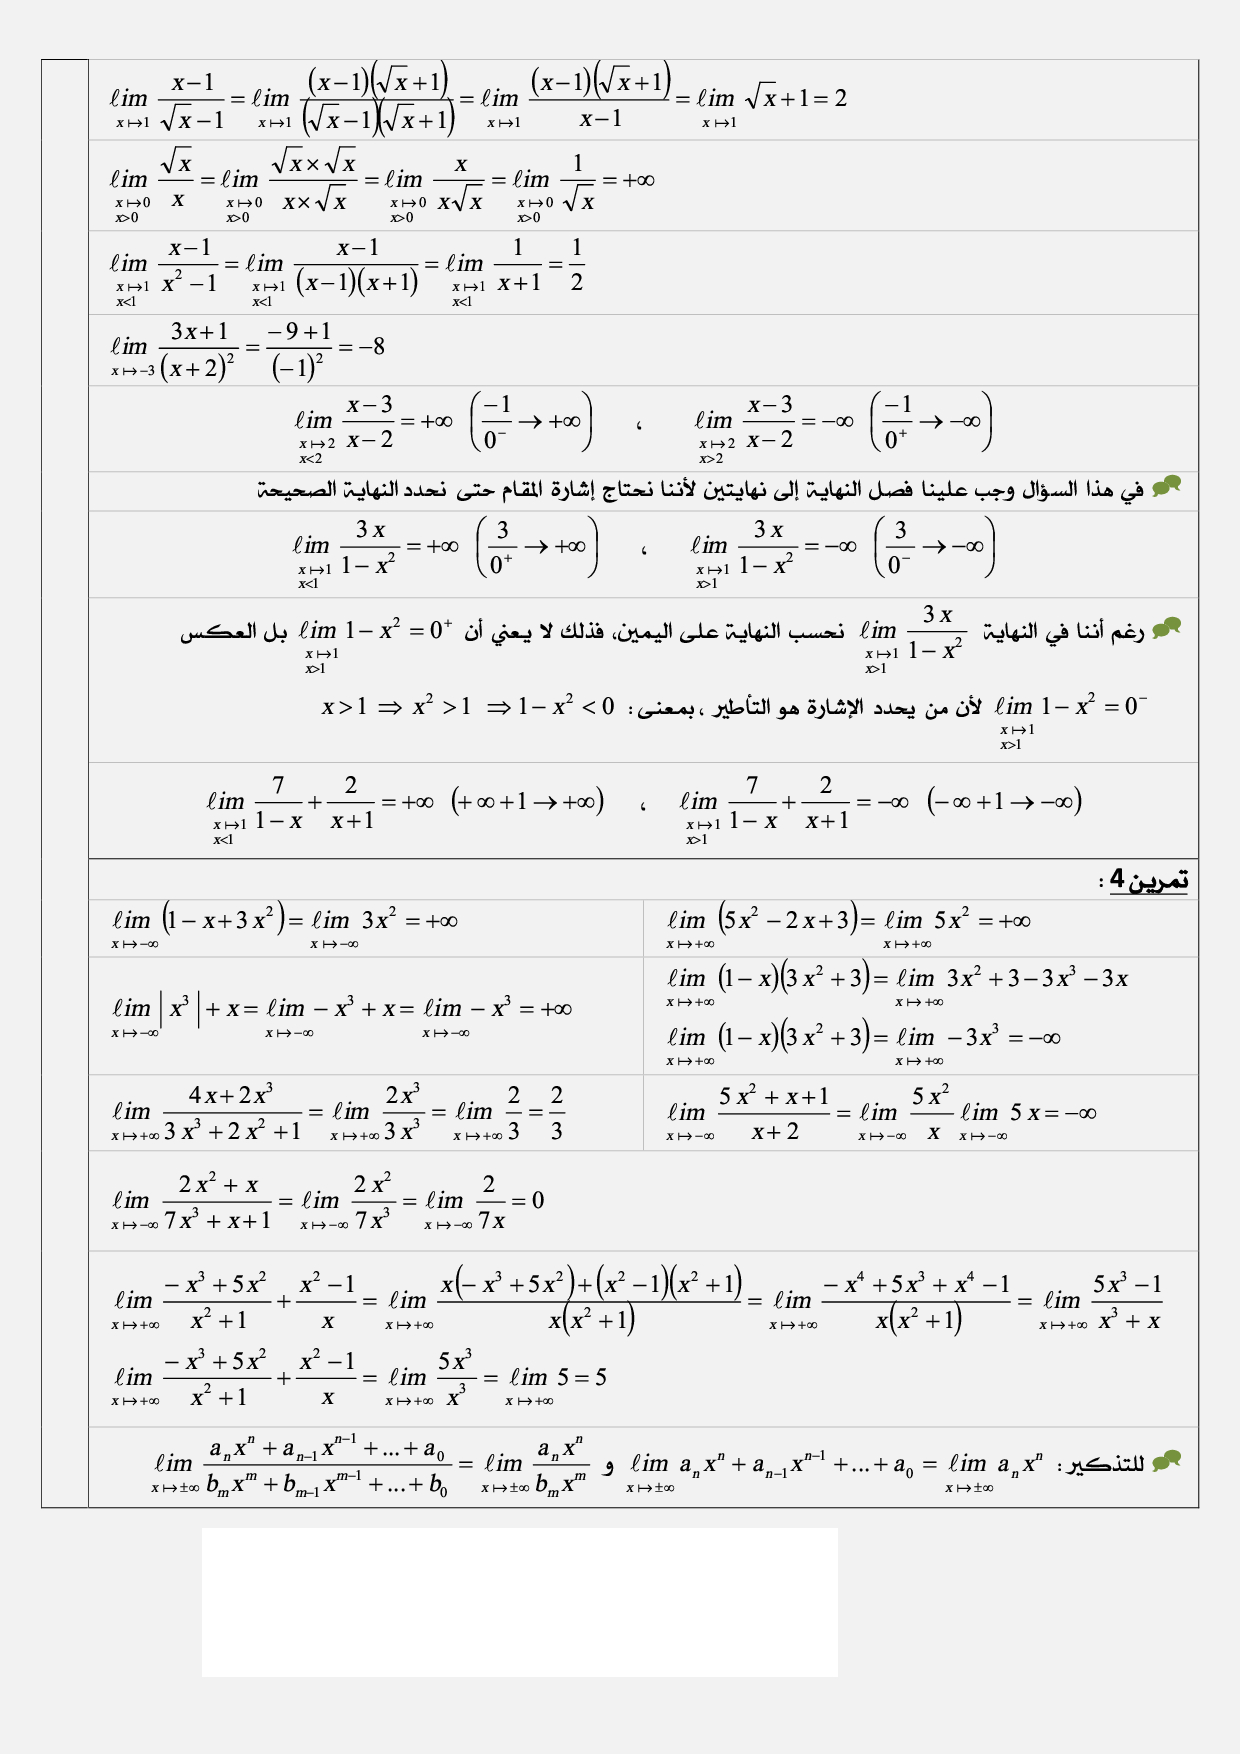 lim_{x↦1} (x−1)/(√x−1) = lim_{x↦1} ((x−1)(√x+1))/((√x−1)(√x+1)) = lim_{x↦1} ((x−1)(√x+1))/(x−1) = lim_{x↦1} √x+1 = 2
lim_{x↦0, x>0} √x/x = lim_{x↦0, x>0} (√x×√x)/(x×√x) = lim_{x↦0, x>0} x/(x√x) = lim_{x↦0, x>0} 1/√x = +∞
lim_{x↦1, x<1} (x−1)/(x²−1) = lim_{x↦1, x<1} (x−1)/((x−1)(x+1)) = lim_{x↦1, x<1} 1/(x+1) = 1/2
lim_{x↦−3} (3x+1)/(x+2)² = (−9+1)/(−1)² = −8
lim_{x↦2, x<2} (x−3)/(x−2) = +∞ (−1/0⁻ → +∞) ، lim_{x↦2, x>2} (x−3)/(x−2) = −∞ (−1/0⁺ → −∞)
في هذا السؤال وجب علينا فصل النهاية إلى نهايتين لأننا نحتاج إشارة المقام حتى نحدد النهاية الصحيحة
lim_{x↦1, x<1} 3x/(1−x²) = +∞ (3/0⁺ → +∞) ، lim_{x↦1, x>1} 3x/(1−x²) = −∞ (3/0⁻ → −∞)
رغم أننا في النهاية lim_{x↦1, x>1} 3x/(1−x²) نحسب النهاية على اليمين، فذلك لا يعني أن lim_{x↦1, x>1} 1−x² = 0⁺ بل العكس
lim_{x↦1, x>1} 1−x² = 0⁻ لأن من يحدد الإشارة هو التأطير ، بمعنى : x>1 ⇒ x²>1 ⇒ 1−x²<0
lim_{x↦1, x<1} 7/(1−x) + 2/(x+1) = +∞ (+∞+1 → +∞) ، lim_{x↦1, x>1} 7/(1−x) + 2/(x+1) = −∞ (−∞+1 → −∞)
تمرين 4 :
lim_{x↦−∞} (1−x+3x²) = lim_{x↦−∞} 3x² = +∞
lim_{x↦+∞} (5x²−2x+3) = lim_{x↦+∞} 5x² = +∞
lim_{x↦−∞} |x³|+x = lim_{x↦−∞} −x³+x = lim_{x↦−∞} −x³ = +∞
lim_{x↦+∞} (1−x)(3x²+3) = lim_{x↦+∞} 3x²+3−3x³−3x
lim_{x↦+∞} (1−x)(3x²+3) = lim_{x↦+∞} −3x³ = −∞
lim_{x↦+∞} (4x+2x³)/(3x³+2x²+1) = lim_{x↦+∞} 2x³/3x³ = lim_{x↦+∞} 2/3 = 2/3
lim_{x↦−∞} (5x²+x+1)/(x+2) = lim_{x↦−∞} 5x²/x lim_{x↦−∞} 5x = −∞
lim_{x↦−∞} (2x²+x)/(7x³+x+1) = lim_{x↦−∞} 2x²/7x³ = lim_{x↦−∞} 2/7x = 0
lim_{x↦+∞} (−x³+5x²)/(x²+1) + (x²−1)/x = lim_{x↦+∞} (x(−x³+5x²)+(x²−1)(x²+1))/(x(x²+1)) = lim_{x↦+∞} (−x⁴+5x³+x⁴−1)/(x(x²+1)) = lim_{x↦+∞} (5x³−1)/(x³+x)
lim_{x↦+∞} (−x³+5x²)/(x²+1) + (x²−1)/x = lim_{x↦+∞} 5x³/x³ = lim_{x↦+∞} 5 = 5
للتذكير : lim_{x↦±∞} aₙxⁿ+aₙ₋₁xⁿ⁻¹+...+a₀ = lim_{x↦±∞} aₙxⁿ و lim_{x↦±∞} (aₙxⁿ+aₙ₋₁xⁿ⁻¹+...+a₀)/(bₘxᵐ+bₘ₋₁xᵐ⁻¹+...+b₀) = lim_{x↦±∞} aₙxⁿ/bₘxᵐ